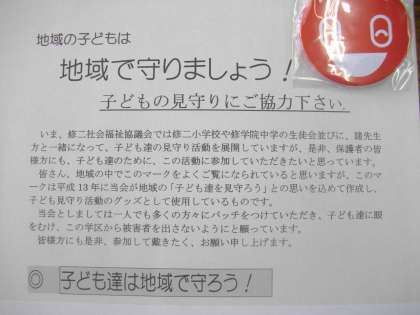 地域の子どもは
地域で守りましょう！
子どもの見守りにご協力下さい。
いま、修二社会福祉協議会では修二小学校や修学院中学の生徒会並びに、諸先生
方と一緒になって、子ども達の見守り活動を展開していますが、是非、保護者の皆
様方にも、子ども達のために、この活動に参加していただきたいと思っています。
皆さん、地域の中でこのマークをよくご覧になられていると思いますが、このマ
ークは平成13年に当会が地域の「子ども達を見守ろう」との思いを込めて作成し、
子ども見守り活動のグッズとして使用しているものです。
当会としましては一人でも多くの方々にバッチをつけていただき、子ども達に眼
をむけ、この学区から被害者を出さないようにと願っています。
皆様方にも是非、参加して戴きたく、お願い申し上げます。
◎ 子ども達は地域で守ろう！